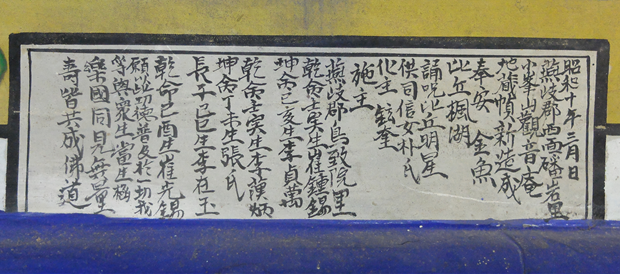 昭和十年二月日
燕岐郡西面磻岩里
小峯山觀音庵
地藏幀新造成
奉安 金魚
比丘楓湖
誦呪比丘明星
供司信女朴氏
化主 鉉奎
施主
燕岐郡鳥致院里
乾命壬寅生崔鍾錫
坤命己亥生李貞萬
乾命壬寅生李漢炳
坤命丁未生張氏
長子己巳生李在玉
乾命己酉生崔光錫
願以此功德普及於一切我
等與衆生當生極
樂國同見無量
壽皆共成佛道